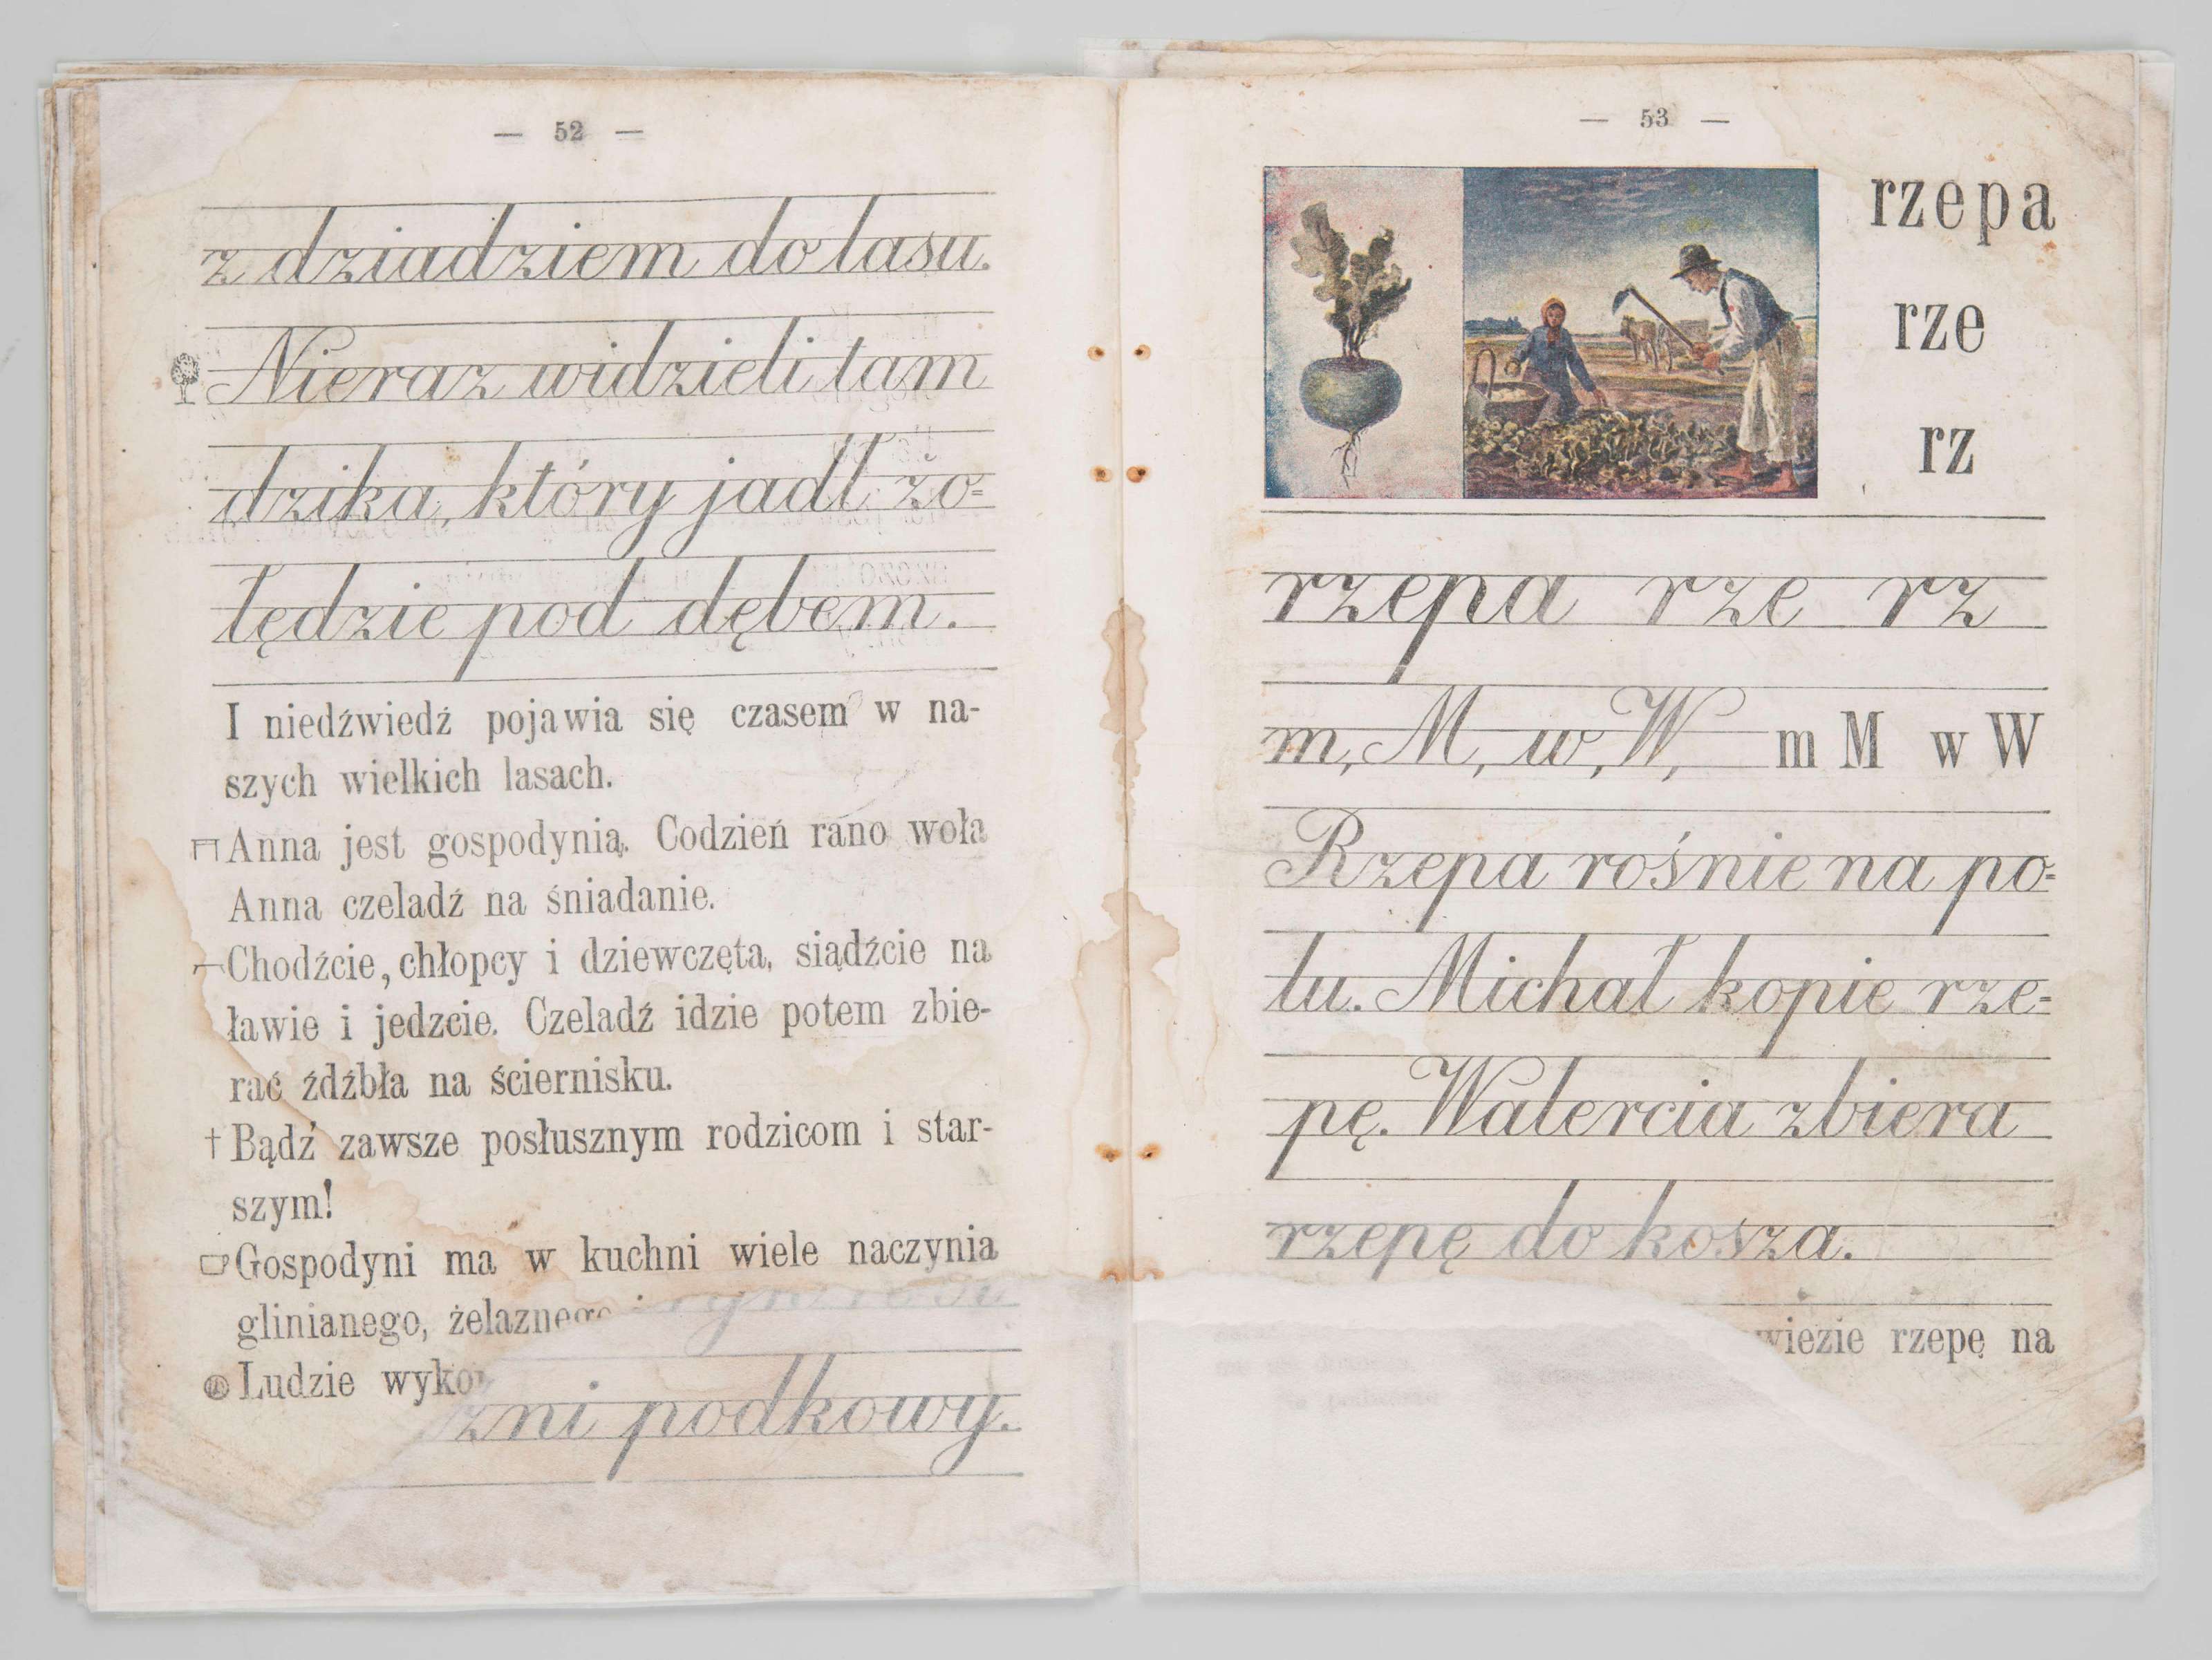 — 52 —
z dziadziem do lasu.
Nieraz widzieli tam
dzika, który jadł żo=
łędzie pod dębem.
I niedźwiedź pojawia się czasem w na-
szych wielkich lasach.
Anna jest gospodynią. Codzień rano woła
Anna czeladź na śniadanie.
Chodźcie, chłopcy i dziewczęta, siądźcie na
ławie i jedzcie. Czeladź idzie potem zbie-
rać źdźbła na ściernisku.
† Bądź zawsze posłusznym rodzicom i star-
szym!
Gospodyni ma w kuchni wiele naczynia
glinianego, żelaznego i
Ludzie
zni podkowy.
— 53 —
rzepa
rze
rz
rzepa rze rz
m, M, w, W, m M w W
Rzepa rośnie na po=
lu. Michał kopie rze=
pę. Walercia zbiera
rzepę do kosza.
wiezie rzepę na